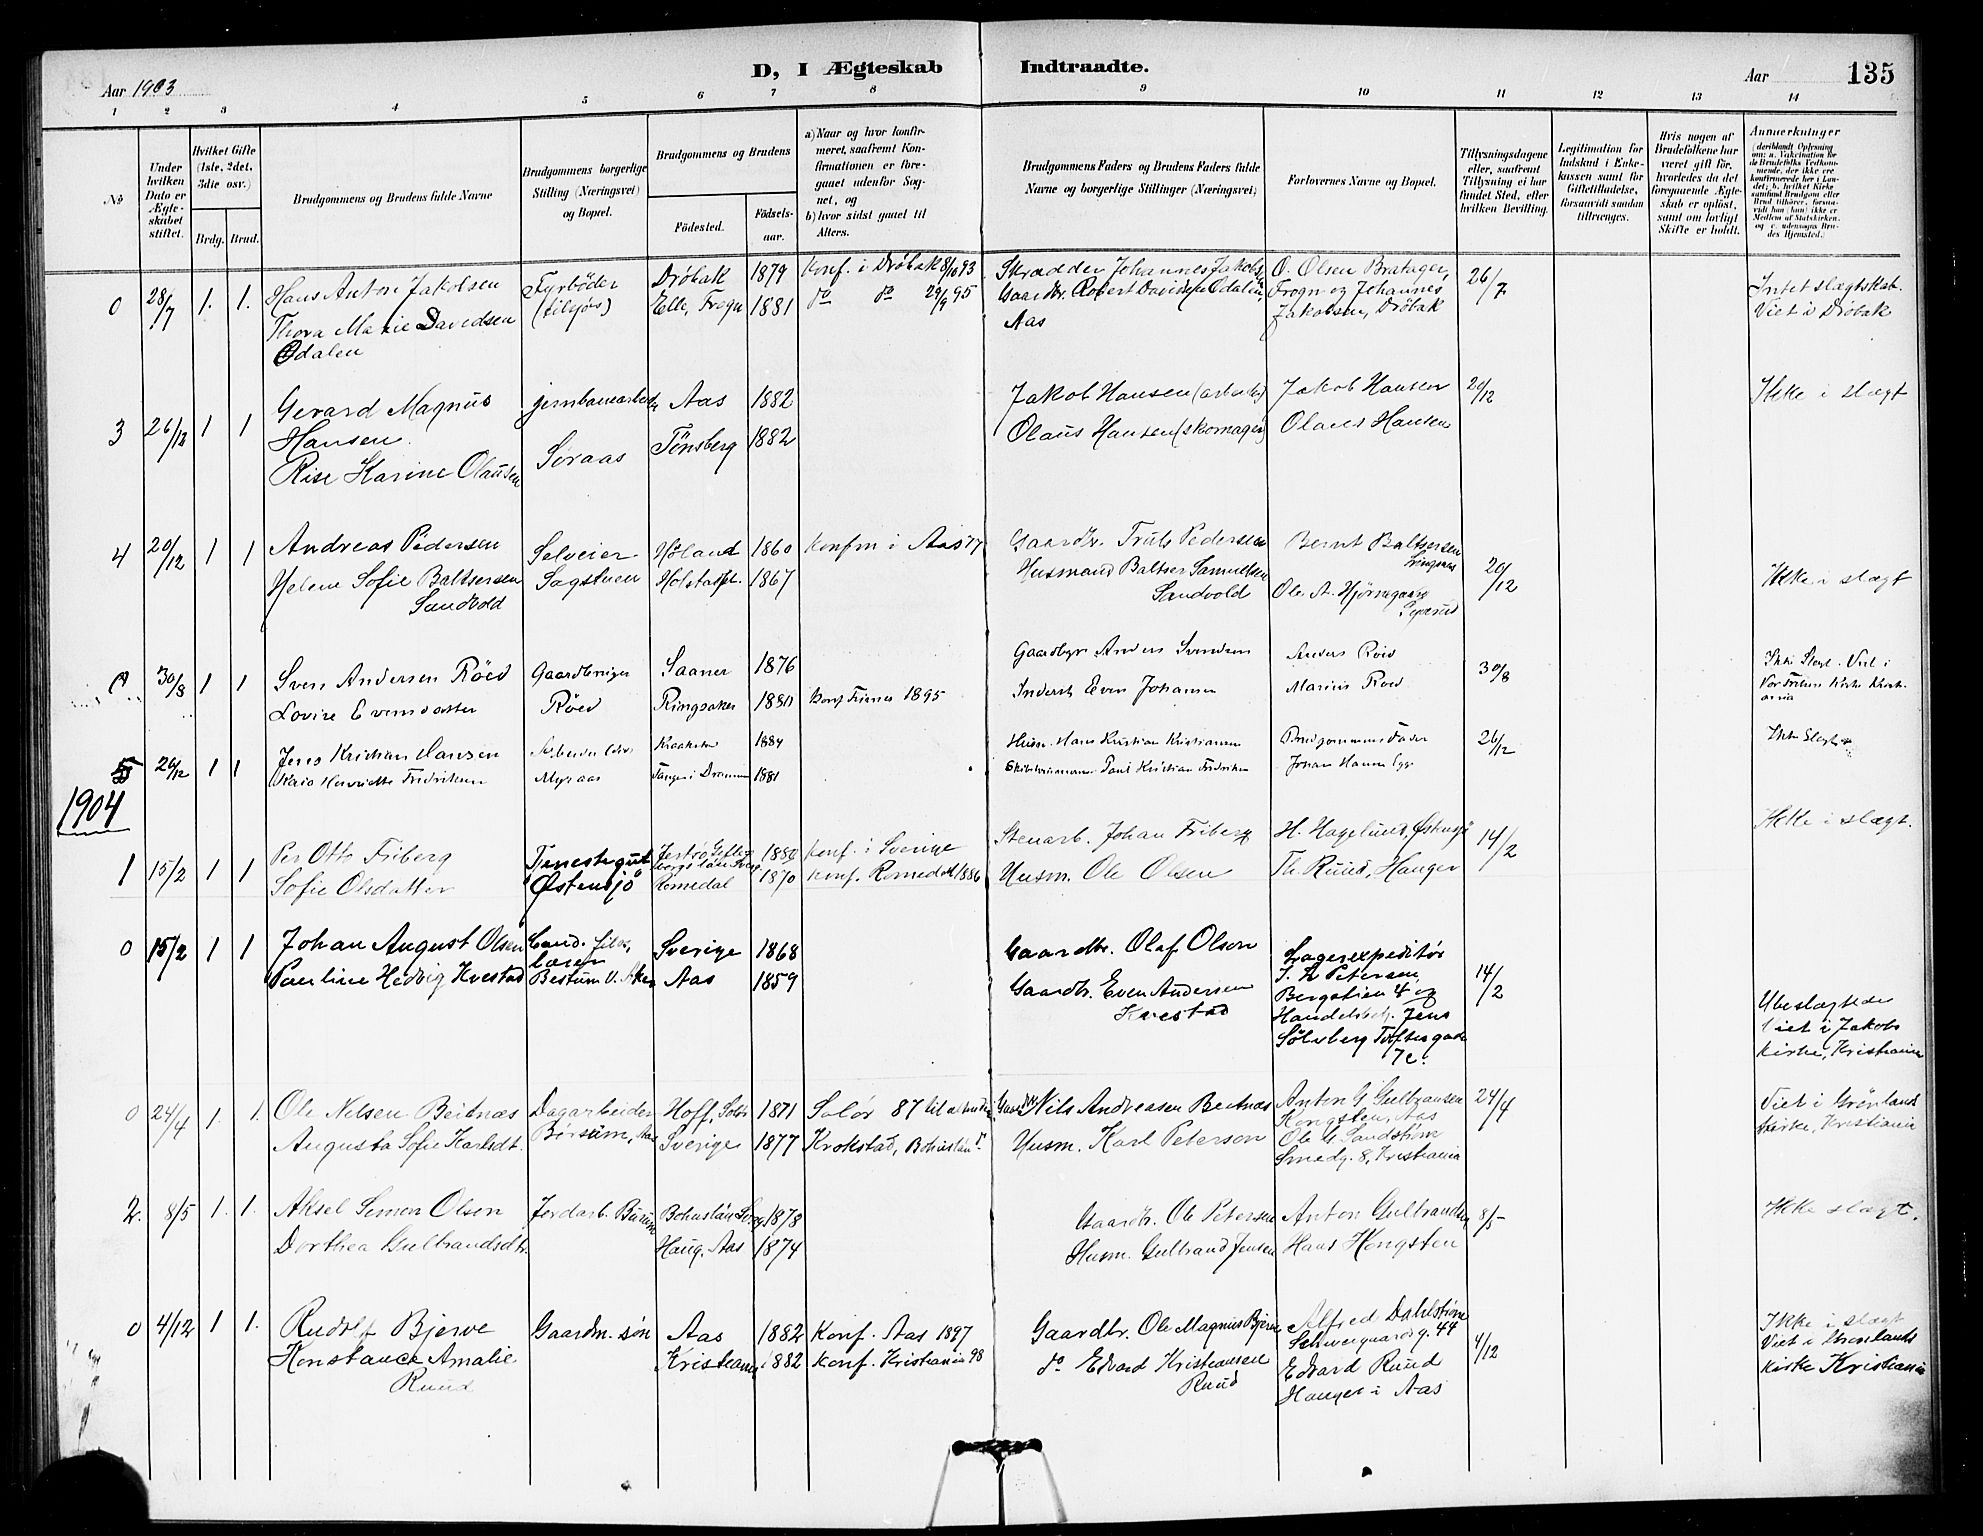 D, I Ægteskab Indtraadte.
Aar 1903
Aar
135
1 2 3 4 5 6 7 8 9 10 11 12 13 14
No
Under hvilken Dato er Ægteskabet stiftet.
Hvilket Gifte (1ste, 2det, 3die osv.)
Brdg. Brud.
Brudgommens og Brudens fulde Navne
Brudgommens borgerlige Stilling (Næringsvei) og Bopæl.
Brudgommens og Brudens
Fødested.
Fødselsaar.
a) Naar og hvor konfirmeret, saafremt Konfirmationen er foregaaet udenfor Sognet, og
b) hvor sidst gaaet til Alters.
Brudgommens Faders og Brudens Faders fulde Navne og borgerlige Stillinger (Næringsvei)
Forlovernes Navne og Bopæl.
Tillysningsdagene eller, saafremt Tillysning ei har fundet Sted, efter hvilken Bevilling.
Legitimation for Indskud i Enkekassen samt for Giftetilladelse, forsaavidt saadan tiltrænges.
Hvis nogen af Brudefolkene har været gift før, hvorledes da det foregaaende Ægteskab er opløst, samt om lovligt Skifte er holdt.
Anmerkninger
0 28/7 1. 1. Hans Anton Jakobsen Fyrbøder Drøbak 1879 Konf. i Drøbak 8/10 93 Skrædder Johannes Jakobsen O. Olsen Bratager, 26/7 Intet slægtskab.
Thora Marie Davidsen (tilsjøs) Elle, Frogn 1881 do do 29/9 95 Gaardbr. Robert Davidsen Odalen Frogn og Johannes Viet i Drøbak
Odalen Aas Jakobsen, Drøbak
3 26/12 1 1 Gerard Magnus jernbanearbeider Aas 1882 Jakob Hansen (arbeider) Jakob Hansen 20/12 Ikke i slægt
Hansen. Søraas Tönsberg 1882 Olaus Hansen (skomager) Olaus Hansen
Rise Karine Olausen
4 20/12 1 1 Andreas Pedersen Selveier Høland 1860 Konfm i Aas 77 Gaardbr. Truls Pedersen Bernt Baltsersen 20/12 Ikke i slægt
Helene Sofie Baltsersen Sagstuen 1867 Husmand Baltser Samuelsen
Sandvold Sandvold Ole A.
30/8 1 1 Sven Andersen Röed Gaardbruger Saaner 1876 Gaardbgr Anders Svendsen Anders Roed 30/8 Ikke Slegt. Viet i
Lovise Evensdatter Röed Ringsaker 1880 1895 Inderst Even Johansen Marius Roed Vor Frelsers Kirke Kristiania
5 26/12 1 1 Jens Kristian Hansen Kraakstad 1884 Husm. Hans Kristian Kristiansen Brudgommens Fader 26/12 Ikke Slegt
Fredriksen Myraas Tangen i Drammen 1881 Paul Kristian Fredriksen Johan Hansen
1904
1 15/2 1 1 Per Otto Friberg Tjenestegut 1880 Konf. i Sverige Stenarb. Johan Friberg H. Hagelund, Østensjø 14/2 Ikke i slægt.
Sofie Olsdatter Østensjø Romedal 1870 Konf. Romedal 1886 Husm. Ole Olsen Th. Ruud, Hauger
0 15/2 1 1 Johan August Olsen Cand. filos, Sverige 1868 Gaardbr. Olaf Olson Lagerexpeditør 14/2 Ubeslægtede
Pauline Hedvig Kvestad Lærer Bestum V. Aker Aas 1859 Gaardbr. Even Andersen Petersen Viet i Jakobs
Kvestad Bergstien 4 og Kirke, Kristiania
Handelsbetj. Jens
Sölvberg Toftesgade
7c.
0 24/4 1. 1. Ole Nelsen Beitnæs Dagarbeider Hoff, Solør 1871 Solör 87 Gaardbr Nils Andreasen Beitnæs Anton G. Gulbransen 24/4 Viet i Grønland
Augusta Sofie Karlsdt. Börsum, Aas Sverige 1877 Krokstad, Bohuslän Husm. Karl Peterson Kongsten, Aas Kirke, Kristiania
Ole G. Sandström
Smedg. 8, Kristiania
2. 8/5 1. 1. Aksel Simon Olsen Jordarb. Burum Bohuslän Sverg 1878 Gaardbr. Ole Petersen Anton Gulbrandsen 8/5 Ikke slægt.
Dorthea Gulbrandsdtr. Haug, Aas 1874 Husm. Gulbrand Jensen Hans Kongsten
0 4/12 1 1. Rudolf Bjerve Gaardm. søn Aas 1882 Konf. Aas 1897 Gaardbr. Ole Magnus Bjerve Alfred Dahlström 4/12 Ikke i slægt
Konstance Amalie Kristiania 1882 Konf. Kristiania 98 do Edvard Kristiansen Schweigaardsg. 44 Viet i Grønlands
Ruud Ruud Edvard Ruud Kirke Kristiania
Hauger i Aas